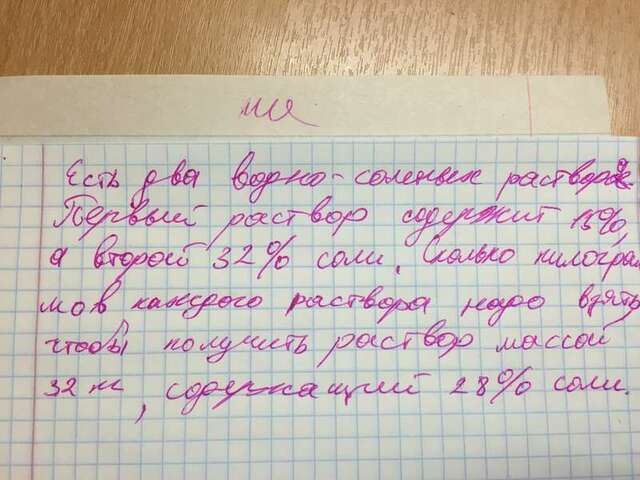 Есть два водно-солевых раствора.
Первый раствор содержит
а второй 32% соли. Сколько килограм
мов каждого раствора надо взять
чтобы получить раствор массой
32 кг, содержащий 28% соли.